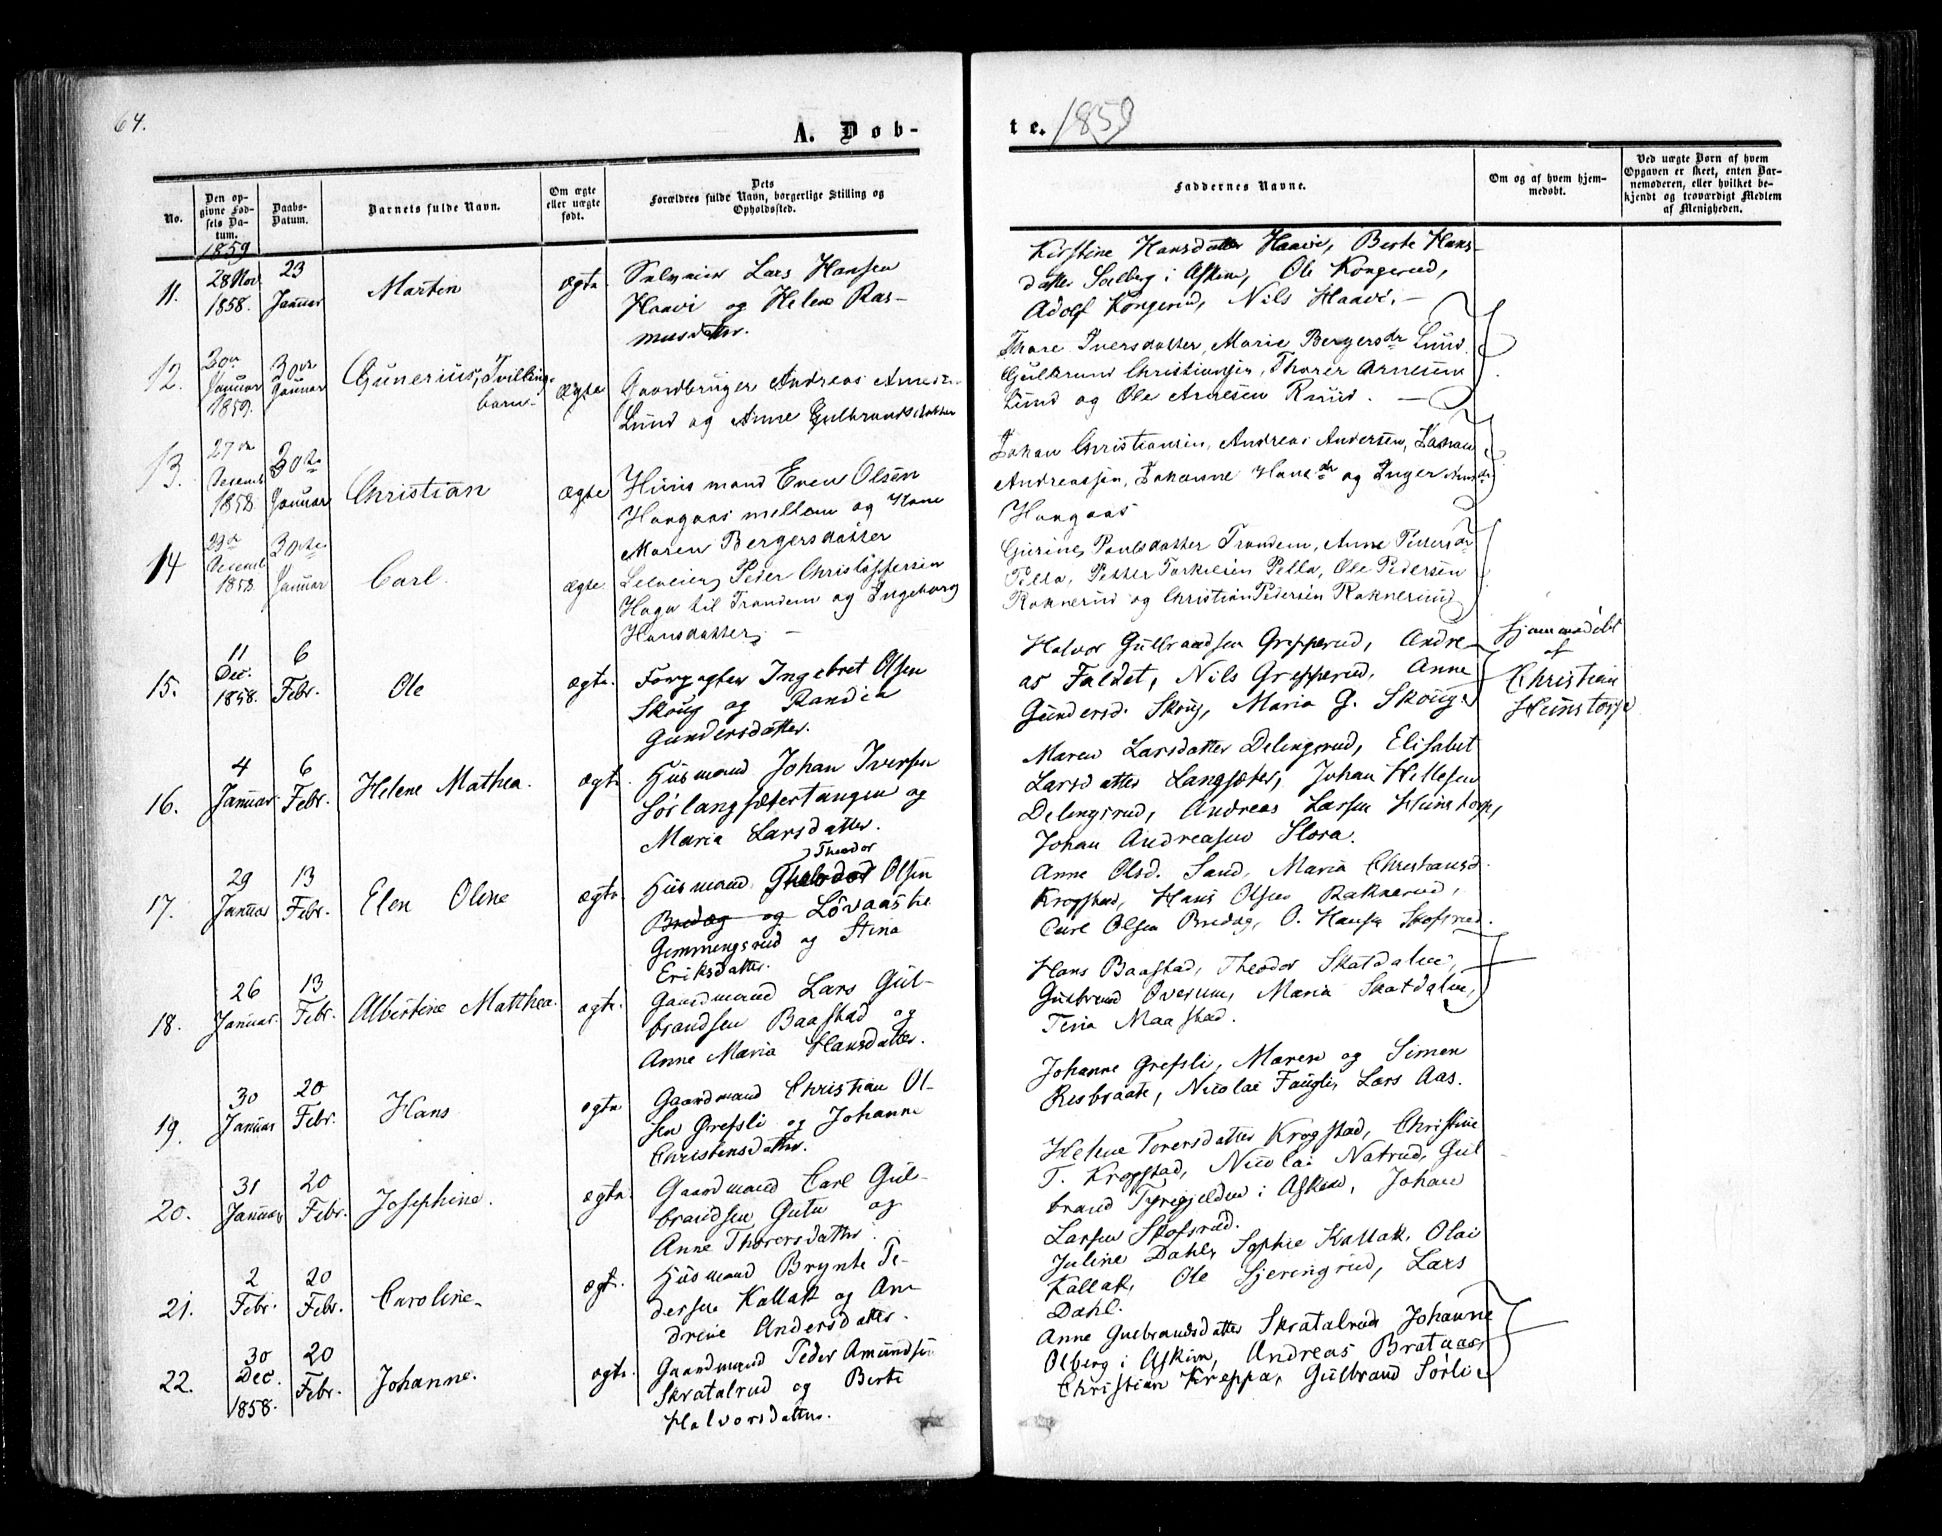 64.
A. Døb-
te. 1859
No.
Den op-
givne Fød-
sels Da-
tum.
Daabs-
Datum.
Barnets fulde Navn.
Om ægte
eller uægte
født.
Dets
Forældres fulde Navn, borgerlige Stilling og
Opholdssted.
Faddernes Navne.
Om og af hvem hjem-
medøbt.
Ved uægte Børn af hvem
Opgaven er skeet, enten Bar-
nemoderen, eller hvilket be-
kjendt og troværdigt Medlem
af Menigheden.
1859
11.
28 Nov
1858.
23
Januar
Martin
ægte.
Lars Hansen
Haavi og Helene Ras-
musdatter.
Kirstine Hansdatter Haavi, Berte Hans-
datter Solberg i Askim, Ole Kongerud,
Adolf Kongerud, Nils Haavi. -
12.
30te
Januar
1859.
30te
Januar
Gunerius, Tvilling-
barn
ægte
Gaardbruger Andreas Arnesen
Lund og Anne Gulbrandsdatter
Thore Iversdatter, Marie Bergersdr Lund
Gulbrand Christiansen, Thorer Arnesen
Lund og Ole Arnesen Ruud. -
13.
27de
Decemb
1858
30te
Januar
Christian
ægte
Huusmand Even Olsen
Haugaas mellem og Hone
Maren Bergersdatter
Johan Christiansen, Andreas Andersen, Johan
Andreassen, Johanne Hansdr og Inger
Haugaas
14
23de
Decemb
1858
30te
Januar
Carl.
ægte
Leieier Peder Christoffersen
Haga til Trondem og Ingeborg
Hansdatter, -
Gurine Paulsdatter Trondem, Anne Pettersdr
Pella, Petter Torkelsen Pella, Ole Pedersen
Raknerud og Christian Pedersen Raknerud
15.
11
Dec.
1858.
6
Febr.
Ole
ægte.
Forpagter Ingebret Olsen
Skoug og Randia
Gundersdatter.
Halvor Gulbrandsen Grepperud, Andre-
as Faldet, Nils Grepperud, Anne
Gundersd. Skoug, Maria G. Skoug.
Hjemmedøbt
af
Christian
Heinstorpe
16.
4
Januar.
6
Febr.
Helene Mathea.
ægte.
Husmand Johan Iversen
Sørlangsætertangen og
Maria Larsdatter.
Maren Larsdatter Delingsrud, Elisabet
Larsdatter Langsæter, Johan Hellesen
Delingsrud, Andreas Larsen Heinstorp,
Johan Andreasen Slora.
17.
29
Januar
13
Febr.
Elen Oline
ægte
Theodor
Husmand Olsen
Bredag og Løvaas
Gimmingsrud og Stina
Eriksdatter.
Anne Olsd. Sand, Maria Christiansd.
Krogstad, Hans Olsen Raknerud,
Carl Olsen Bredag, O. Hansen Skofsrud.
18.
26
Januar.
13
Febr.
Albertine Matthea.
ægte.
Gaardmand Lars Gul-
brandsen Baastad og
Anne Maria Hansdatter.
Hans Baastad, Theodor Skatdalen,
Gulbrand Overum, Maria Skatdalen,
Tina Maastad.
19.
30
Januar
20
Febr.
Hans
ægte
Gaardmand Christian Ol-
sen Grefsli og Johanne
Christensdatter.
Johanne Grefsli, Maren og Simen
Risbraate, Nicolai Faugli, Lars Aas.
20.
31
Januar
20
Febr.
Josephine.
ægte.
Gaardmand Carl Gul-
brandsen Gutu og
Anne Thorersdatter.
Helene Torersdatter Krogstad, Christine
T. Krogstad, Nicolai Natrud, Gul
brand Tyregjelden i Askim, Johan
Larsen Skofsrud.
21.
2
Febr.
20
Febr.
Caroline.
ægt.
Husmand Brynte Pe-
dersen Kallak og An-
drine Andersdatter.
Juline Dahl, Sophie Kallak, Olai
Kallak, Ole Gjeringrud, Lars
Dahl.
22.
30
Dec.
1858.
20
Febr.
Johanne.
ægte.
Gaardmand Peder Amundsen
Skratalrud og Berte
Halvorsdatter.
Anne Gulbrandsdatter Skratalrud, Johanne
Olberg i Askim, Andreas Brataas,
Christian Kreppa, Gulbrand Sørlie